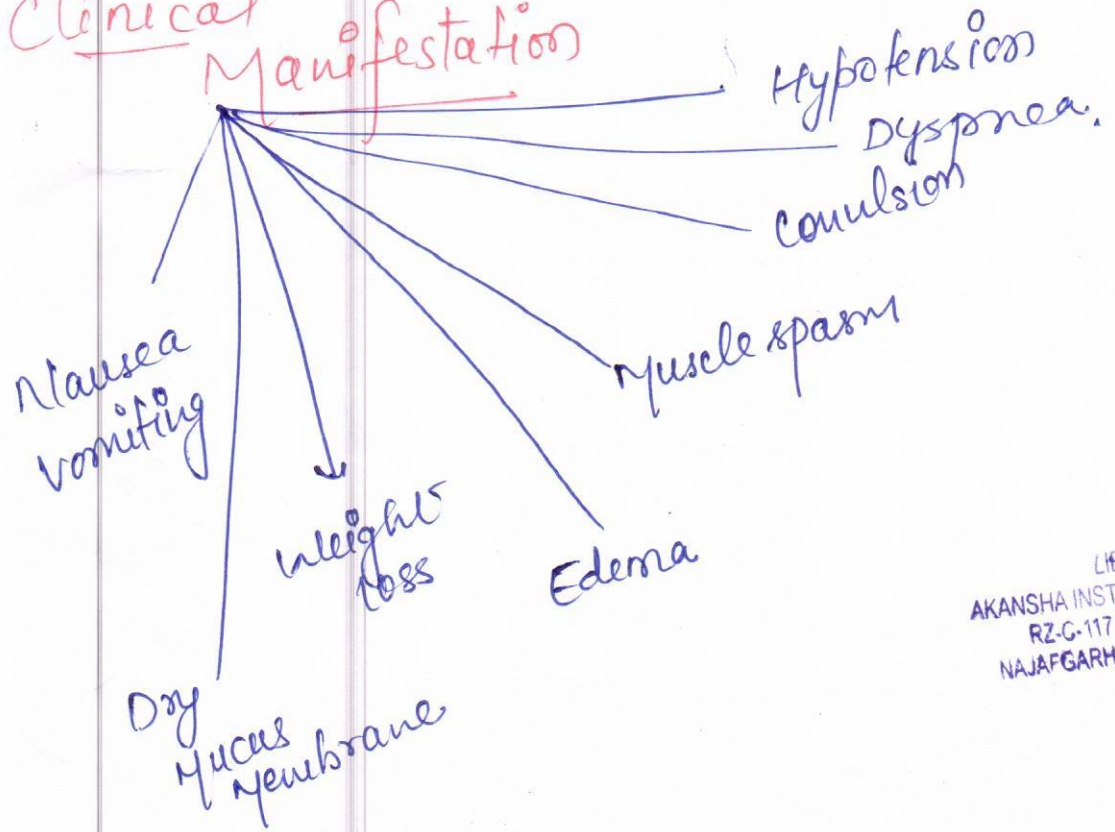 Clinical
Manifestation
Hypotension
Dyspnea.
Convulsion
Muscle spasm
Edema
Weight
loss
Nausea
vomiting
Dry
Mucus
Membrane
AKANSHA INST
RZ-C-117
NAJAFGARH